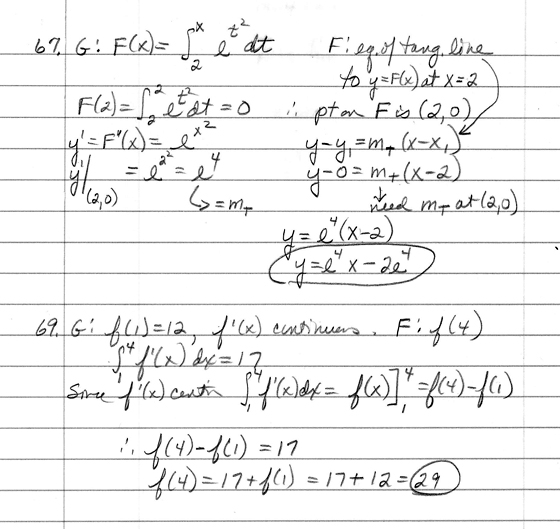 67. G: F(x) = ∫₂ˣ e^(t²) dt    F: eq. of tang. line
to y = F(x) at x = 2
F(2) = ∫₂² e^(t²) dt = 0    ∴ pt on F is (2,0)
y' = F'(x) = e^(x²)    y - y₁ = m_T (x - x₁)
y'|_(2,0) = e^(2²) = e⁴    y - 0 = m_T (x - 2)
↳ = m_T    ↓ need m_T at (2,0)
y = e⁴(x - 2)
y = e⁴x - 2e⁴
69. G: f(1) = 12, f'(x) continuous. F: f(4)
∫₁⁴ f'(x) dx = 17
Since f'(x) contin ∫₁⁴ f'(x) dx = f(x)]₁⁴ = f(4) - f(1)
∴ f(4) - f(1) = 17
f(4) = 17 + f(1) = 17 + 12 = 29